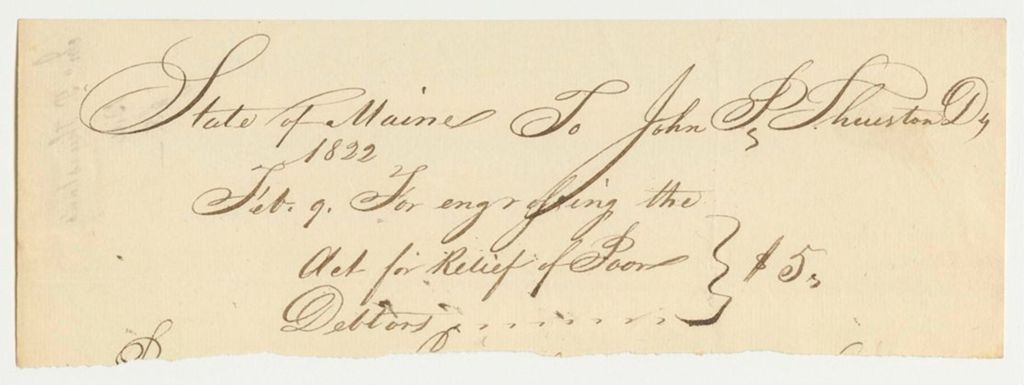 State of Maine To John P. Thurston Dr
1822
Feb. 9. For engrossing the
Act for Relief of Poor
Debtors . . . . . . . } $5,